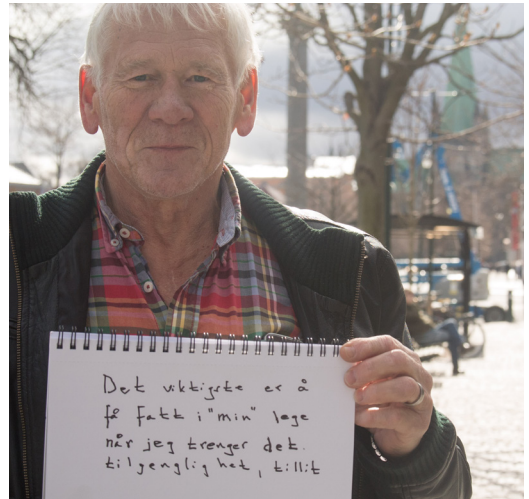 Det viktigste er å
få fatt i "min" lege
når jeg trenger det.
tilgjenglighet, tillit